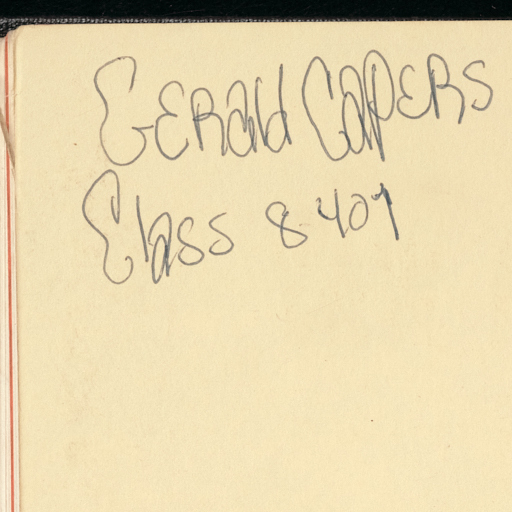 GERald CapERS
Class 8-407